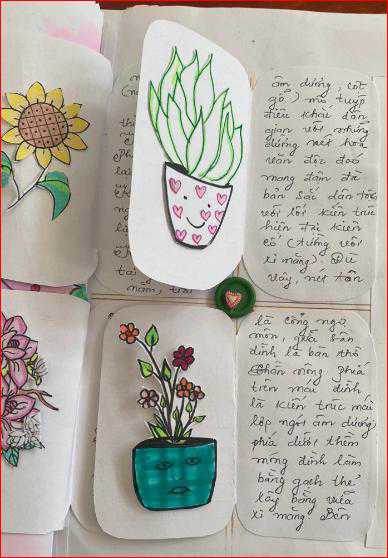 âm dương, cột
gỗ) mô tuýp
điêu khắc dân
gian với những
đường nét hoa
văn độc đáo
mang đậm đà
bản sắc dân tộc
với lối kiến trúc
hiện đại kiên
cố (tường vôi
xi măng). Dù
vậy, nét tân
năm, trải
là cổng ngũ
môn, giữa sân
đình là bàn thờ
thần nông phía
trên mái đình
là kiến trúc mái
lợp ngói âm dương
phía dưới thềm
móng đình làm
bằng gạch thẻ
xây bằng vữa
xi măng. Bên